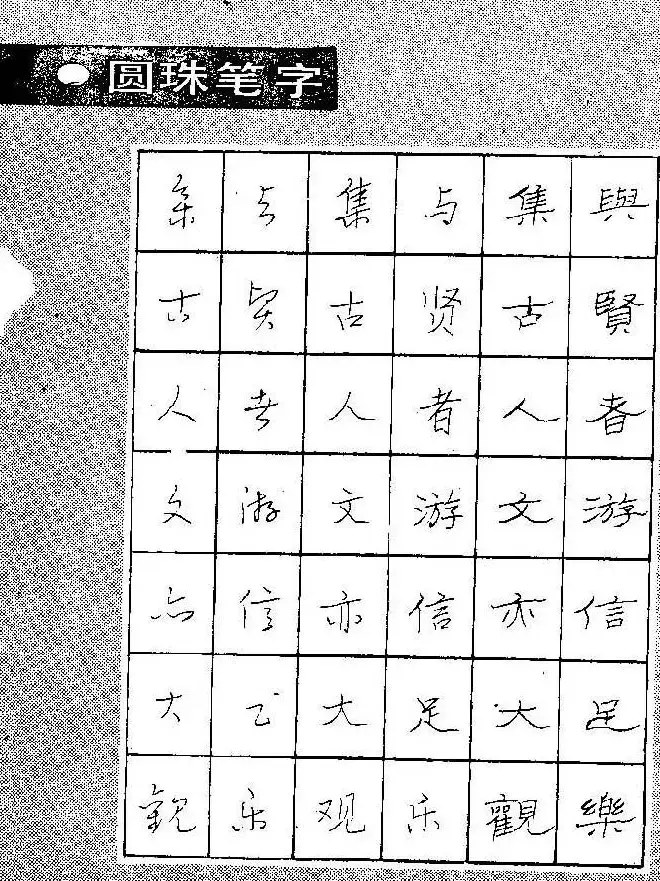 圆珠笔字
集与集与集與
古贤古贤古賢
人者人者人者
文游文游文游
亦信亦信亦信
大足大足大足
观乐观乐觀樂